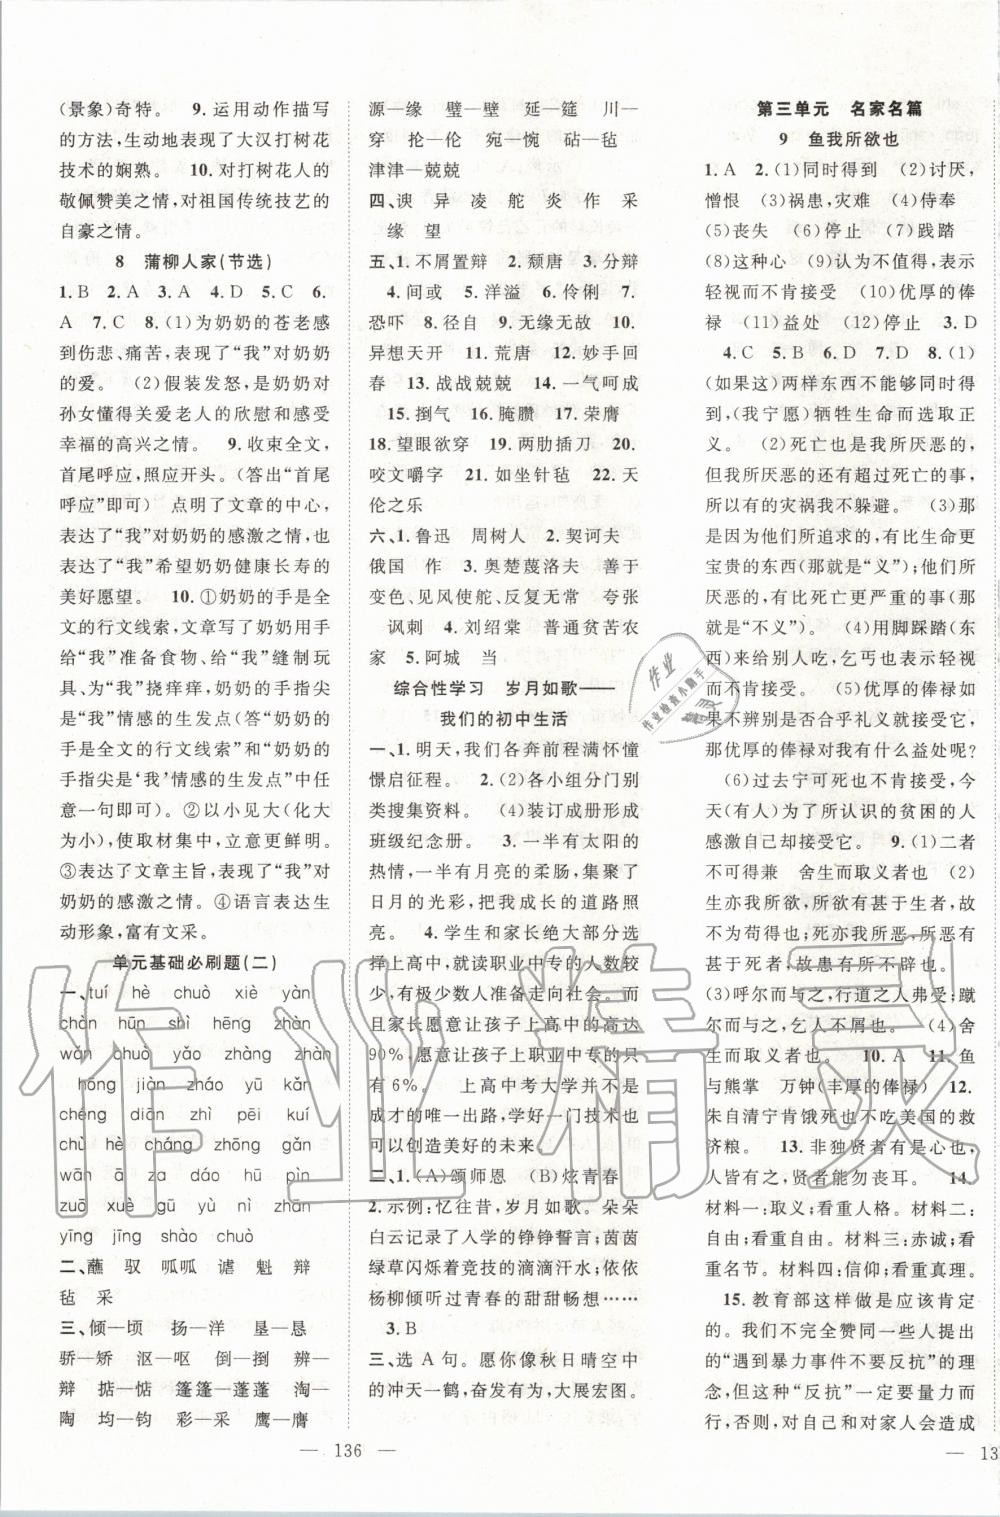 (景象)奇特。　9. 运用动作描写
的方法,生动地表现了大汉打树花
技术的娴熟。　10. 对打树花人的
敬佩赞美之情,对祖国传统技艺的
自豪之情。
8　蒲柳人家(节选)
1. B　2. A　3. A　4. D　5. C　6.
A　7. C　8. (1)为奶奶的苍老感
到伤悲、痛苦,表现了“我”对奶奶
的爱。　(2)假装发怒,是奶奶对
孙女懂得关爱老人的欣慰和感受
幸福的高兴之情。　9. 收束全文,
首尾呼应,照应开头。(答出“首尾
呼应”即可)　点明了文章的中心,
表达了“我”对奶奶的感激之情,也
表达了“我”希望奶奶健康长寿的
美好愿望。　10. ①奶奶的手是全
文的行文线索,文章写了奶奶用手
给“我”准备食物、给“我”缝制玩
具、为“我”挠痒痒,奶奶的手指尖
是“我”情感的生发点(答“奶奶的
手是全文的行文线索”和“奶奶的
手指尖是‘我’情感的生发点”中任
意一句即可);②以小见大(化大
为小),使取材集中,立意更鲜明。
③表达了文章主旨,表现了“我”对
奶奶的感激之情。④语言表达生
动形象,富有文采。
单元基础必刷题(二)
一、tuí　hè　chuò　xiè　yàn
chàn　hūn　shì　hēng　zhàn
wǎn　chuò　yǎo　zhàng　zhàn
hōng　jiàn　zháo　yū　kǎn
chéng　diān　zhì　pēi　kuí
chù　hè　cháng　zhōng　gǎn
wāng　ǎi　za　dáo　hū　pín
zuō　xuè　gū　yú　nì　zhān
yīng　jīng　shào　chuò
二、蘸　驭　呱呱　谑　魁　辩
毡　采
三、倾—顷　扬—洋　垦—恳
骄—矫　沤—呕　倒—捯　辨—
辩　掂—惦　篷篷—蓬蓬　淘—
陶　均—钧　彩—采　鹰—膺
源—缘　璧—壁　延—筵　川—
穿　抡—伦　宛—惋　砧—毡
津津—兢兢
四、演　异　凌　舵　炎　作　采
缘　望
五、1. 不屑置辩　2. 颓唐　3. 分辩
4. 间或　5. 洋溢　6. 伶俐　7.
恐吓　8. 径自　9. 无缘无故　10.
异想天开　11. 荒唐　12. 妙手回
春　13. 战战兢兢　14. 一气呵成
15. 捯气　16. 腌臜　17. 荣膺
18. 望眼欲穿　19. 两肋插刀　20.
咬文嚼字　21. 如坐针毡　22. 天
伦之乐
六、1. 鲁迅　周树人　2. 契诃夫
俄国　作　3. 奥楚蔑洛夫　善于
变色、见风使舵、反复无常　夸张
讽刺　4. 刘绍棠　普通贫苦农
家　5. 阿城　当
综合性学习　岁月如歌——
我们的初中生活
一、1. 明天,我们各奔前程满怀憧
憬启征程。　2. (2)各小组分门别
类搜集资料。　(4)装订成册形成
班级纪念册。　3. 一半有太阳的
热情,一半有月亮的柔肠,集聚了
日月的光彩,把我成长的道路照
亮。　4. ①学生和家长绝大部分
选择上高中,就读职业中专的人数较
少,有极少数人准备走向社会。②
且家长愿意让孩子上高中的高达
90%,愿意让孩子上职业中专的只
有 6%。　上高中考大学并不是
成才的唯一出路,学好一门技术也
可以创造美好的未来。
二、1. (A)颂师恩　(B)炫青春
2. 示例:忆往昔,岁月如歌。朵朵
白云记录了入学的铮铮誓言;茵茵
绿草闪烁着竞技的滴滴汗水;依依
杨柳倾听过青春的甜甜畅想……
3. B
三、选 A 句。愿你像秋日晴空中
的冲天一鹤,奋发有为,大展宏图。
— 136 —
第三单元　名家名篇
9　鱼我所欲也
1. A　2. (1)同时得到　(2)讨厌,
憎恨　(3)祸患,灾难　(4)侍奉
(5)丧失　(6)停止　(7)践踏
(8)这种心　(9)认为不值得,表示
轻视而不肯接受　(10)优厚的俸
禄　(11)益处　(12)停止　3. D
4. C　5. B　6. D　7. D　8. (1)
(如果这)两样东西不能够同时得
到,(我宁愿)牺牲生命而选取正
义。　(2)死亡也是我所厌恶的,
但我所厌恶的还有超过死亡的事,
所以有的灾祸我不躲避。　(3)那
么是因为他们所追求的,有比生命更
宝贵的东西(那就是“义”);他们所
厌恶的,有比死亡更严重的事(那
就是“不义”)。　(4)用脚踩踏(东
西)来给别人吃,乞丐也表示轻视
而不肯接受。　(5)优厚的俸禄如
果不辨别是否合乎礼义就接受它,
那优厚的俸禄对我有什么益处呢?
(6)过去宁可死也不肯接受,今
天(有人)为了所认识的贫困的人
感激自己却接受它。　9. (1)二者
不可得兼　舍生而取义者也　(2)
生亦我所欲,所欲有甚于生者,故
不为苟得也;死亦我所恶,所恶有
甚于死者,故患有所不辟也
(3)呼尔而与之,行道之人弗受;蹴
尔而与之,乞人不屑也　(4)舍
生而取义者也。　10. A　11. 鱼
与熊掌　万钟(丰厚的俸禄)　12.
朱自清宁肯饿死也不吃美国的救
济粮。　13. 非独贤者有是心也,
人皆有之,贤者能勿丧耳。　14.
材料一:取义;看重人格。材料二:
自由;看重尊严。材料三:赤诚;看
重名节。材料四:信仰;看重真理。
15. 教育部这样做是应该肯定
的。我们不完全赞同一些人提出
的“遇到暴力事件不要反抗”的理
念,但这种“反抗”一定要量力而
行,否则,对自己和对家人会造成
— 13
作业
作业检查小助手
精灵
作业精灵